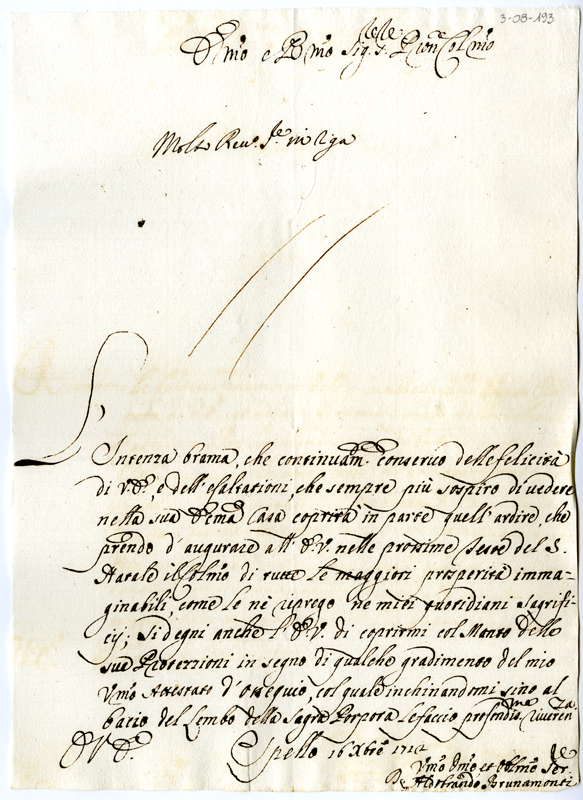 3-08-193
Emo e Rmo Sig.re Pron Colmo
Molto Reu. in riga
L'Intenza brama, che continuam.te conseruo delle felicità
di V.E., e dell'esaltationi, che sempre più sospiro di vedere
nella sua Ecma Casa coprirà in parte quell'ardire, che
prendo d'augurare all'E.V. nelle prossime feste del S.
Natale il Colmo di tutte le maggiori prosperità imma=
ginabili, come le ne riprego ne miei quotidiani sagrifi-
cij; si degni anche l'E.V. di coprirmi col Manto delle
sue Protezzioni in segno di qualche gradimento del mio
Vmo Attestato d'ossequio, col quale inchinandomi sino al
bacio del Lembo della Sagra Porpora le faccio profondma riuerenza
D V E.
Spello 16 Xbre 1712
Vmo Dmo et Oblmo Ser.re
Aldebrando Brunamonti